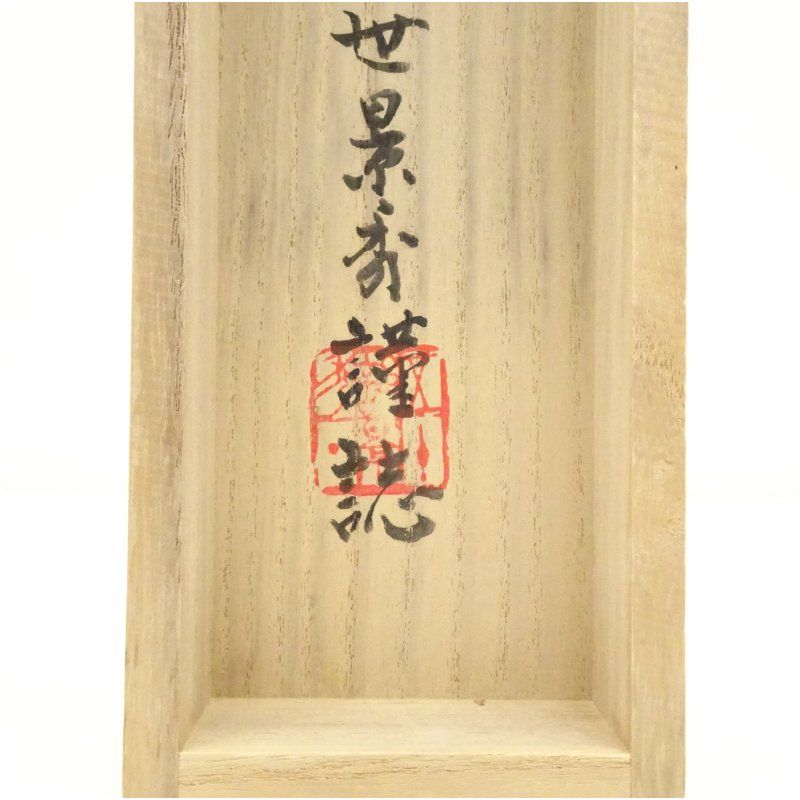 世景秀謹誌